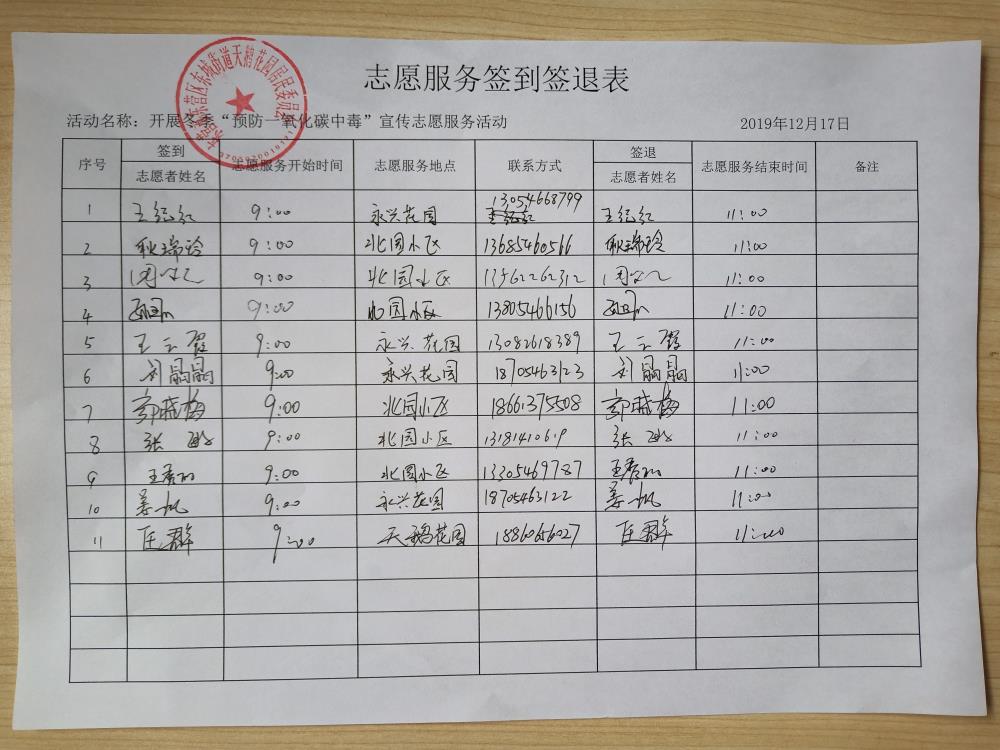 志愿服务签到签退表
活动名称：开展冬季“预防一氧化碳中毒”宣传志愿服务活动 2019年12月17日
序号 签到 志愿服务开始时间 志愿服务地点 联系方式 签退 志愿服务结束时间 备注
志愿者姓名 志愿者姓名
1 王纪红 9:00 永兴花园 13054668799 王纪红 11:00
2 耿瑞玲 9:00 北园小区 13685460566 耿瑞玲 11:00
3 9:00 北园小区 13562262312 11:00
4 9:00 北园小区 13805466156 11:00
5 9:00 永兴花园 13082618389 11:00
6 刘晶晶 9:00 永兴花园 18705463123 刘晶晶 11:00
7 郭晓梅 9:00 北园小区 18661375508 郭晓梅 11:00
8 张 9:00 北园小区 13181410619 张 11:00
9 9:00 北园小区 13305469787 11:00
10 姜帆 9:00 永兴花园 18705463122 姜帆 11:00
11 匡群 9:00 天鹅花园 18860656027 匡群 11:00